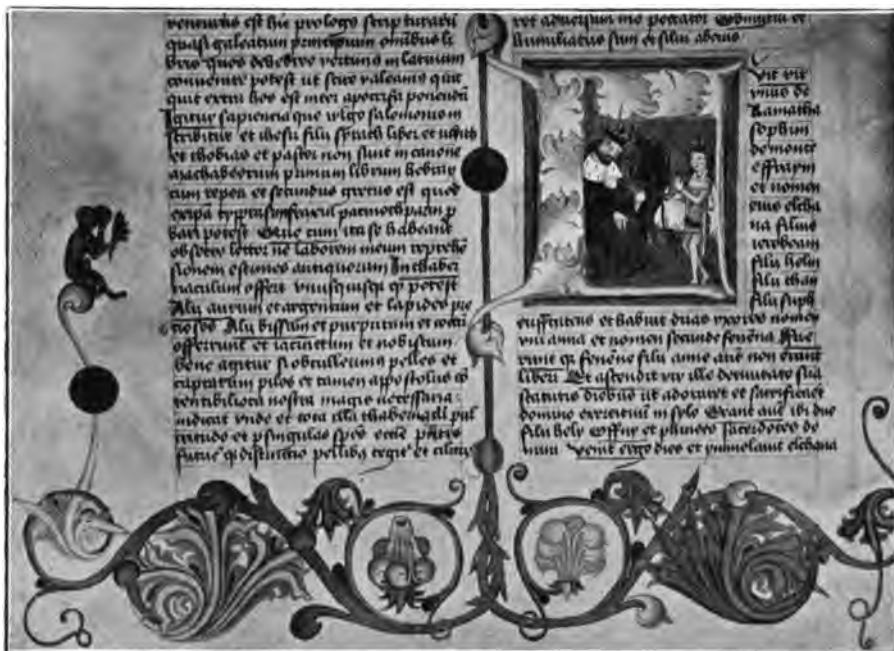 quasi galeatum principium omnibus li
bris quos de hebreo vertimus in latinum
convenire potest ut scire valeamus quit
quit extra hos est inter apocrifa ponendū
Igitur sapiencia que wlgo salomonis in
scribitur et ihesu filii syrach liber et iudith
et thobias et pastor non sunt in canone
machabeorum primum librum hebray
cum reperi et secundus grecus est quod
bari potest Que cum ita se habeant
obsecro lector ne laborem meum reprehē
sionem estimes antiquorum In thaber
naculum offert unusquisque qd potest
Alii aurum et argentum et lapides pre
ciosos Alii bissum et purpuram et
offerrunt et iacinctum et nobiscum
bene agitur si obtullerimus pelles et
caprarum pilos et tamen appostolus
nostra magis necessaria
iudicat unde et tota illa thabernaculi pul
critudo et
pellibus tegitur et ciliciis
ret adversum me peccator et
humiliatus sum et silui a bonis
vit vir
unus de
Ramatha
sophim
de monte
effraym
et nomen
eius elcha
na filius
ieroboam
filii heliu
filii thau
filii suph
effrateus et habuit duas uxores nomen
uni anna et nomen secunde fenēna Fue
runt fenēne filii anne autē non erant
liberi Et ascendit vir ille de civitate sua
statutis diebus ut adoraret et sacrificaret
domino exercituū in sylo Erant autē ibi duo
filii hely Offny et phinees sacerdotes do
mini Venit ergo dies et ymmolavit elchana